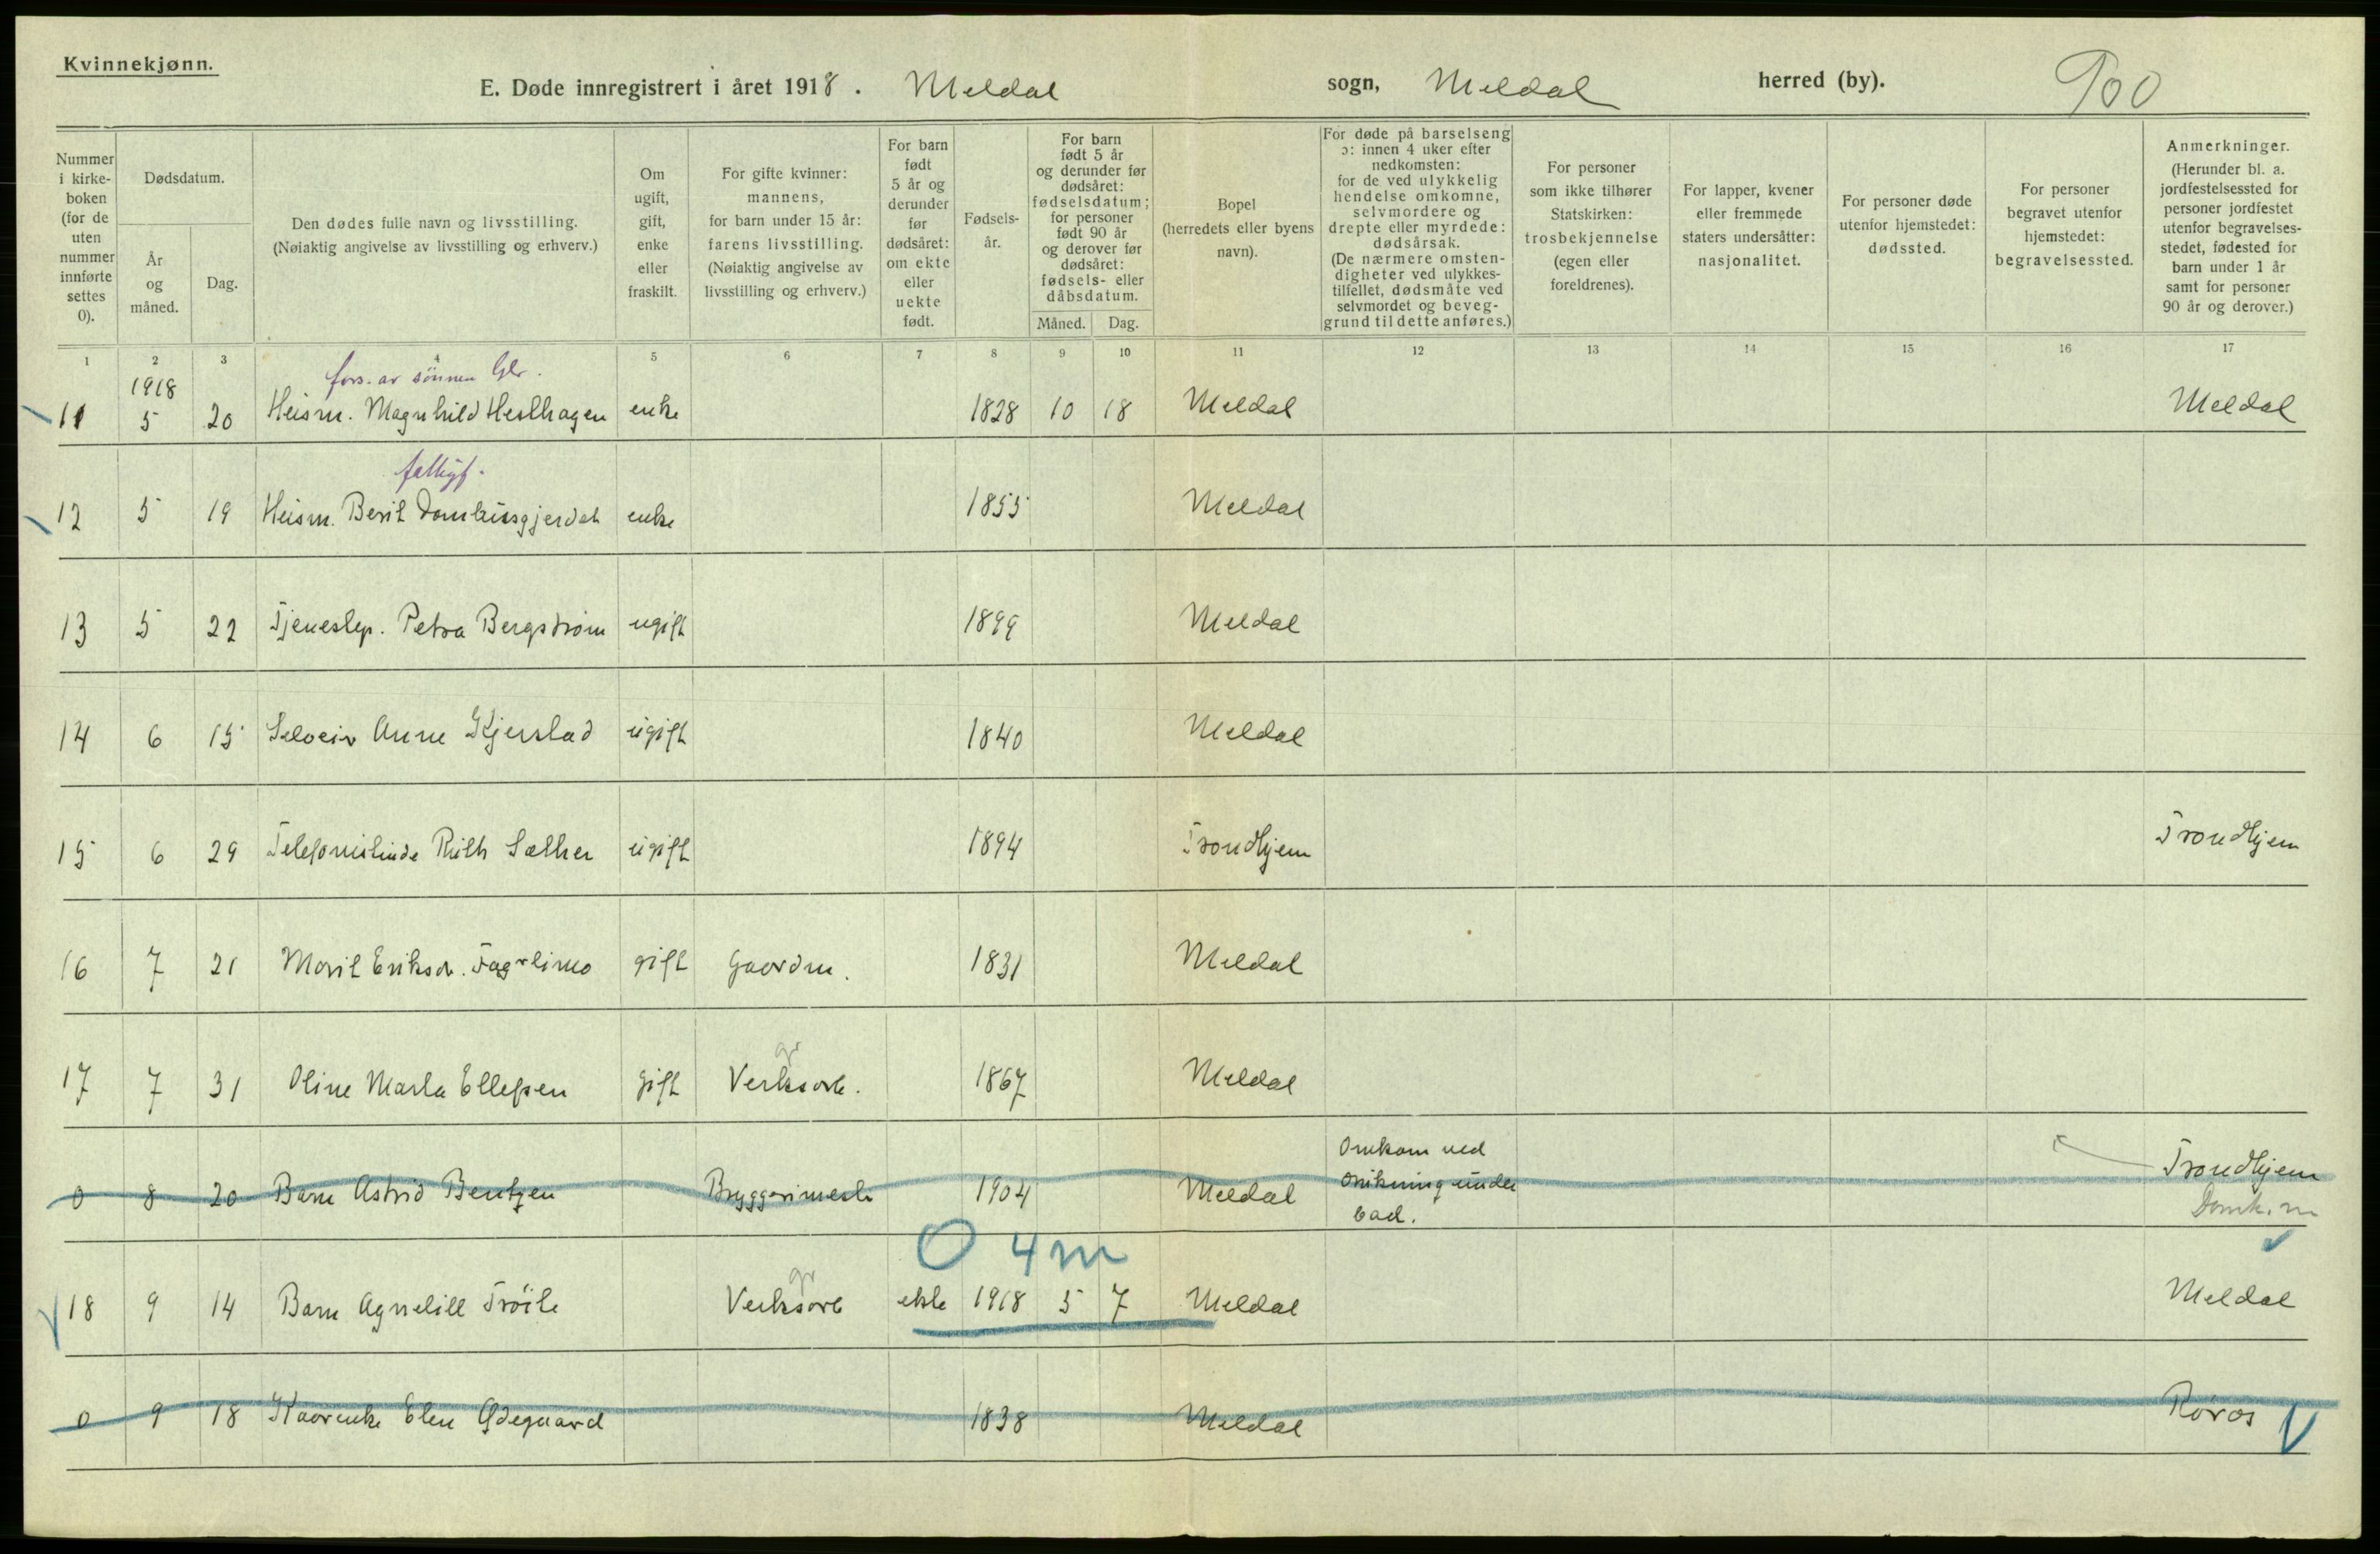 Kvinnekjønn.
E. Døde innregistrert i året 1918. Meldal sogn, Meldal herred (by). 900
Nummer i kirkeboken (for de uten nummer innførte settes 0).
Dødsdatum.
År og måned.
Dag.
Den dødes fulle navn og livsstilling.
(Nøiaktig angivelse av livsstilling og erhverv.)
Om ugift, gift, enke eller fraskilt.
For gifte kvinner: mannens, for barn under 15 år: farens livsstilling. (Nøiaktig angivelse av livsstilling og erhverv.)
For barn født 5 år og derunder før dødsåret: om ekte eller uekte født.
Fødselsår.
For barn født 5 år og derunder før dødsåret: fødselsdatum; for personer født 90 år og derover før dødsåret: fødsels- eller dåbsdatum.
Måned. Dag.
Bopel (herredets eller byens navn).
For døde på barselseng ɔ: innen 4 uker efter nedkomsten: for de ved ulykkelig hendelse omkomne, selvmordere og drepte eller myrdede: dødsårsak. (De nærmere omstendigheter ved ulykkestilfellet, dødsmåte ved selvmordet og beveggrund til dette anføres.)
For personer som ikke tilhører Statskirken: trosbekjennelse (egen eller foreldrenes).
For lapper, kvener eller fremmede staters undersåtter: nasjonalitet.
For personer døde utenfor hjemstedet: dødssted.
For personer begravet utenfor hjemstedet: begravelsessted.
Anmerkninger. (Herunder bl. a. jordfestelsessted for personer jordfestet utenfor begravelsesstedet, fødested for barn under 1 år samt for personer 90 år og derover.)
1 2 3 4 5 6 7 8 9 10 11 12 13 14 15 16 17
1918 fors. av sönnen
11 5 20 Heism. Magnhild Heslhagen enke 1828 10 18 Meldal Meldal
fattigf.
12 5 19 Heism. Berit enke 1855 Meldal
13 5 22 Tjenestep. Petra Bergström ugift 1899 Meldal
14 6 15 Anne Kjerstad ugift 1840 Meldal
15 6 29 Telefonistinde Ruth Sæther ugift 1894 Trondhjem Trondhjem
16 7 21 Marit Eriksdr. Fagerlimo gift Gaardm. 1831 Meldal
gr
17 7 31 Oline Marta Ellefsen gift Verksarb. 1867 Meldal
0 8 20 Barn Astrid Bentzen Bryggerimestr 1904 Meldal Omkom ved drukning under bad. Trondhjem
Domk. m
0 4 m
gr
18 9 14 Barn Agnelill Tröite Verksarb ekte 1918 5 7 Meldal Meldal
0 9 18 Kaarenke Elen Ødegaard 1838 Meldal Röros